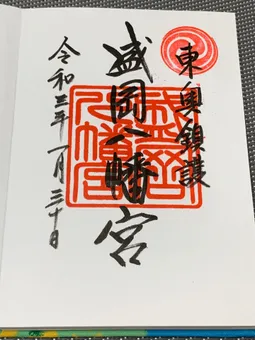 東奥鎮護
盛岡八幡宮
盛岡
八幡宮
令和三年一月三十日